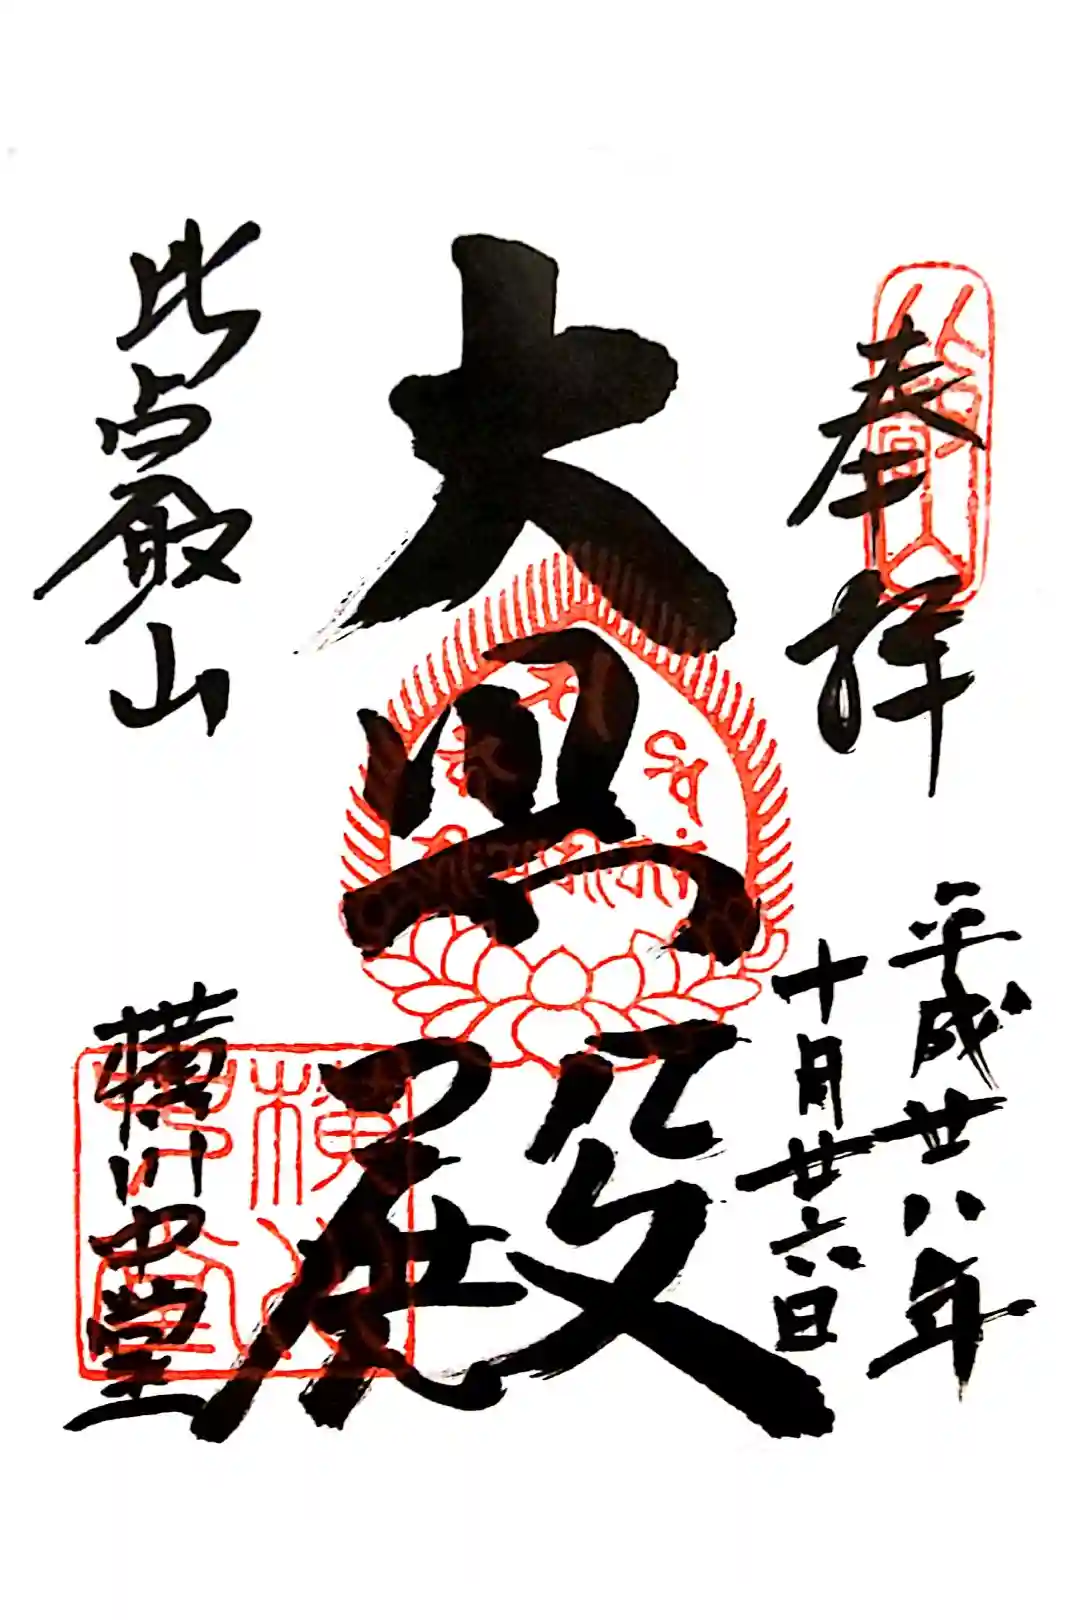 奉拝
平成廿八年
十月廿六日
大悲殿
比叡山
横川中堂
横川
中堂